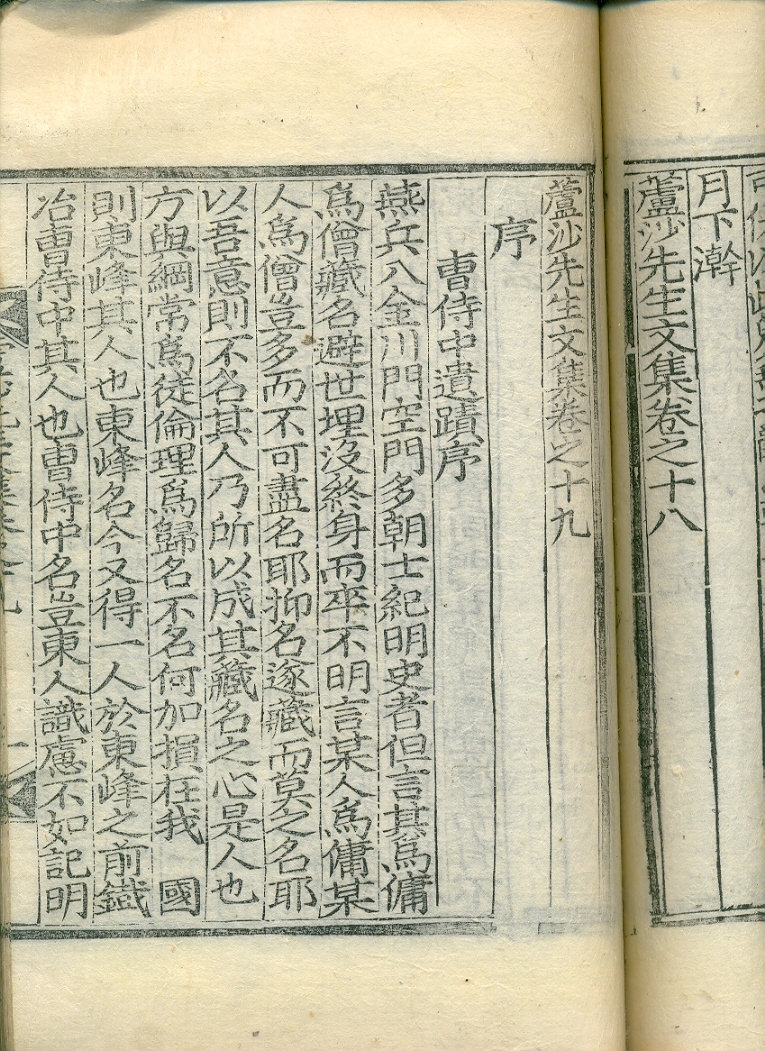 月下澣
蘆沙先生文集卷之十八
蘆沙先生文集卷之十九
序
曺侍中遺蹟序
燕兵入金川門空門多朝士紀明史者但言其爲傭
爲僧藏名避世埋沒終身而卒不明言某人爲傭某
人爲僧豈多而不可盡名耶抑名遂藏而莫之名耶
以吾意則不名其人乃所以成其藏名之心是人也
方與綱常爲徒倫理爲歸名不名何加損在我 國
則東峰其人也東峰名今又得一人於東峰之前鐵
冶曺侍中其人也曺侍中名豈東人識慮不如記明